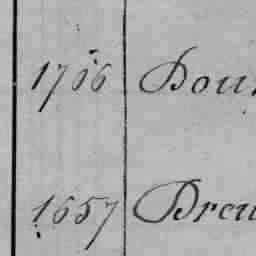 1766 Dou
1657 Breu